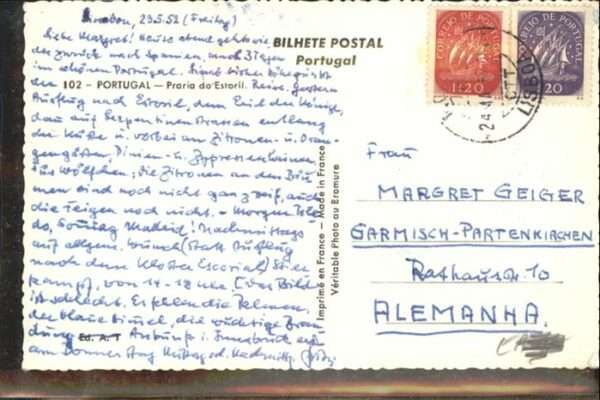 Lissabon, 23.5.52 (Freitag)
Liebe Margret! Heute abend geht's wie-
der zurück nach Spanien, nach 3 Tagen
im schönen Portugal.
Reise. Gestern
Ausflug nach Estoril, dem Exil der Könige,
dann auf Serpentinenstrassen entlang
der Küste u. vorbei an Zitronen- u. Oran-
gengärten, Pinien- u. Zypressenhainen
die Zitronen an den Bäu-
men sind noch nicht ganz reif, auch
die Feigen noch nicht. - Morgen Tole-
do, Sonntag Madrid! Nachmittags
auf allgem. Wunsch (statt Ausflug
nach dem Kloster Escorial) Stier-
kampf, von 17 - 18 Uhr (Das Bild
ist schlecht. Es fehlen die Palmen,
der blaue Himmel, die wuchtige Bran-
dung. Ankunft i. Innsbruck erst
am Donnerstag
BILHETE POSTAL
Portugal
102 - PORTUGAL — Praria do Estoril.
Ed. A. T
Imprimé en France — Made in France
Véritable Photo au Bromure
CORREIO DE PORTUGAL
1$20
CORREIO DE PORTUGAL
$20
LISBOA
Frau
MARGRET GEIGER
GARMISCH-PARTENKIRCHEN
Rathausstr. 10
ALEMANHA